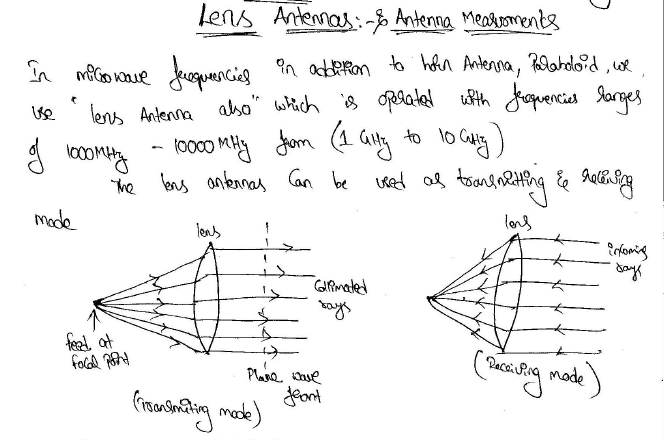 Lens Antennas:- & Antenna Measurments
In microwave frequencies in addition to horn Antenna, Paraboloid, we
use "lens Antenna also" which is operated with frequencies ranges
of 1000MHz - 10000 MHz from (1 GHz to 10 GHz)
The lens antennas can be used as transmitting & receiving
mode
lens
Collimated
rays
feed at
focal point
Plane wave
front
(Transmitting mode)
lens
incoming
rays
(Receiving mode)